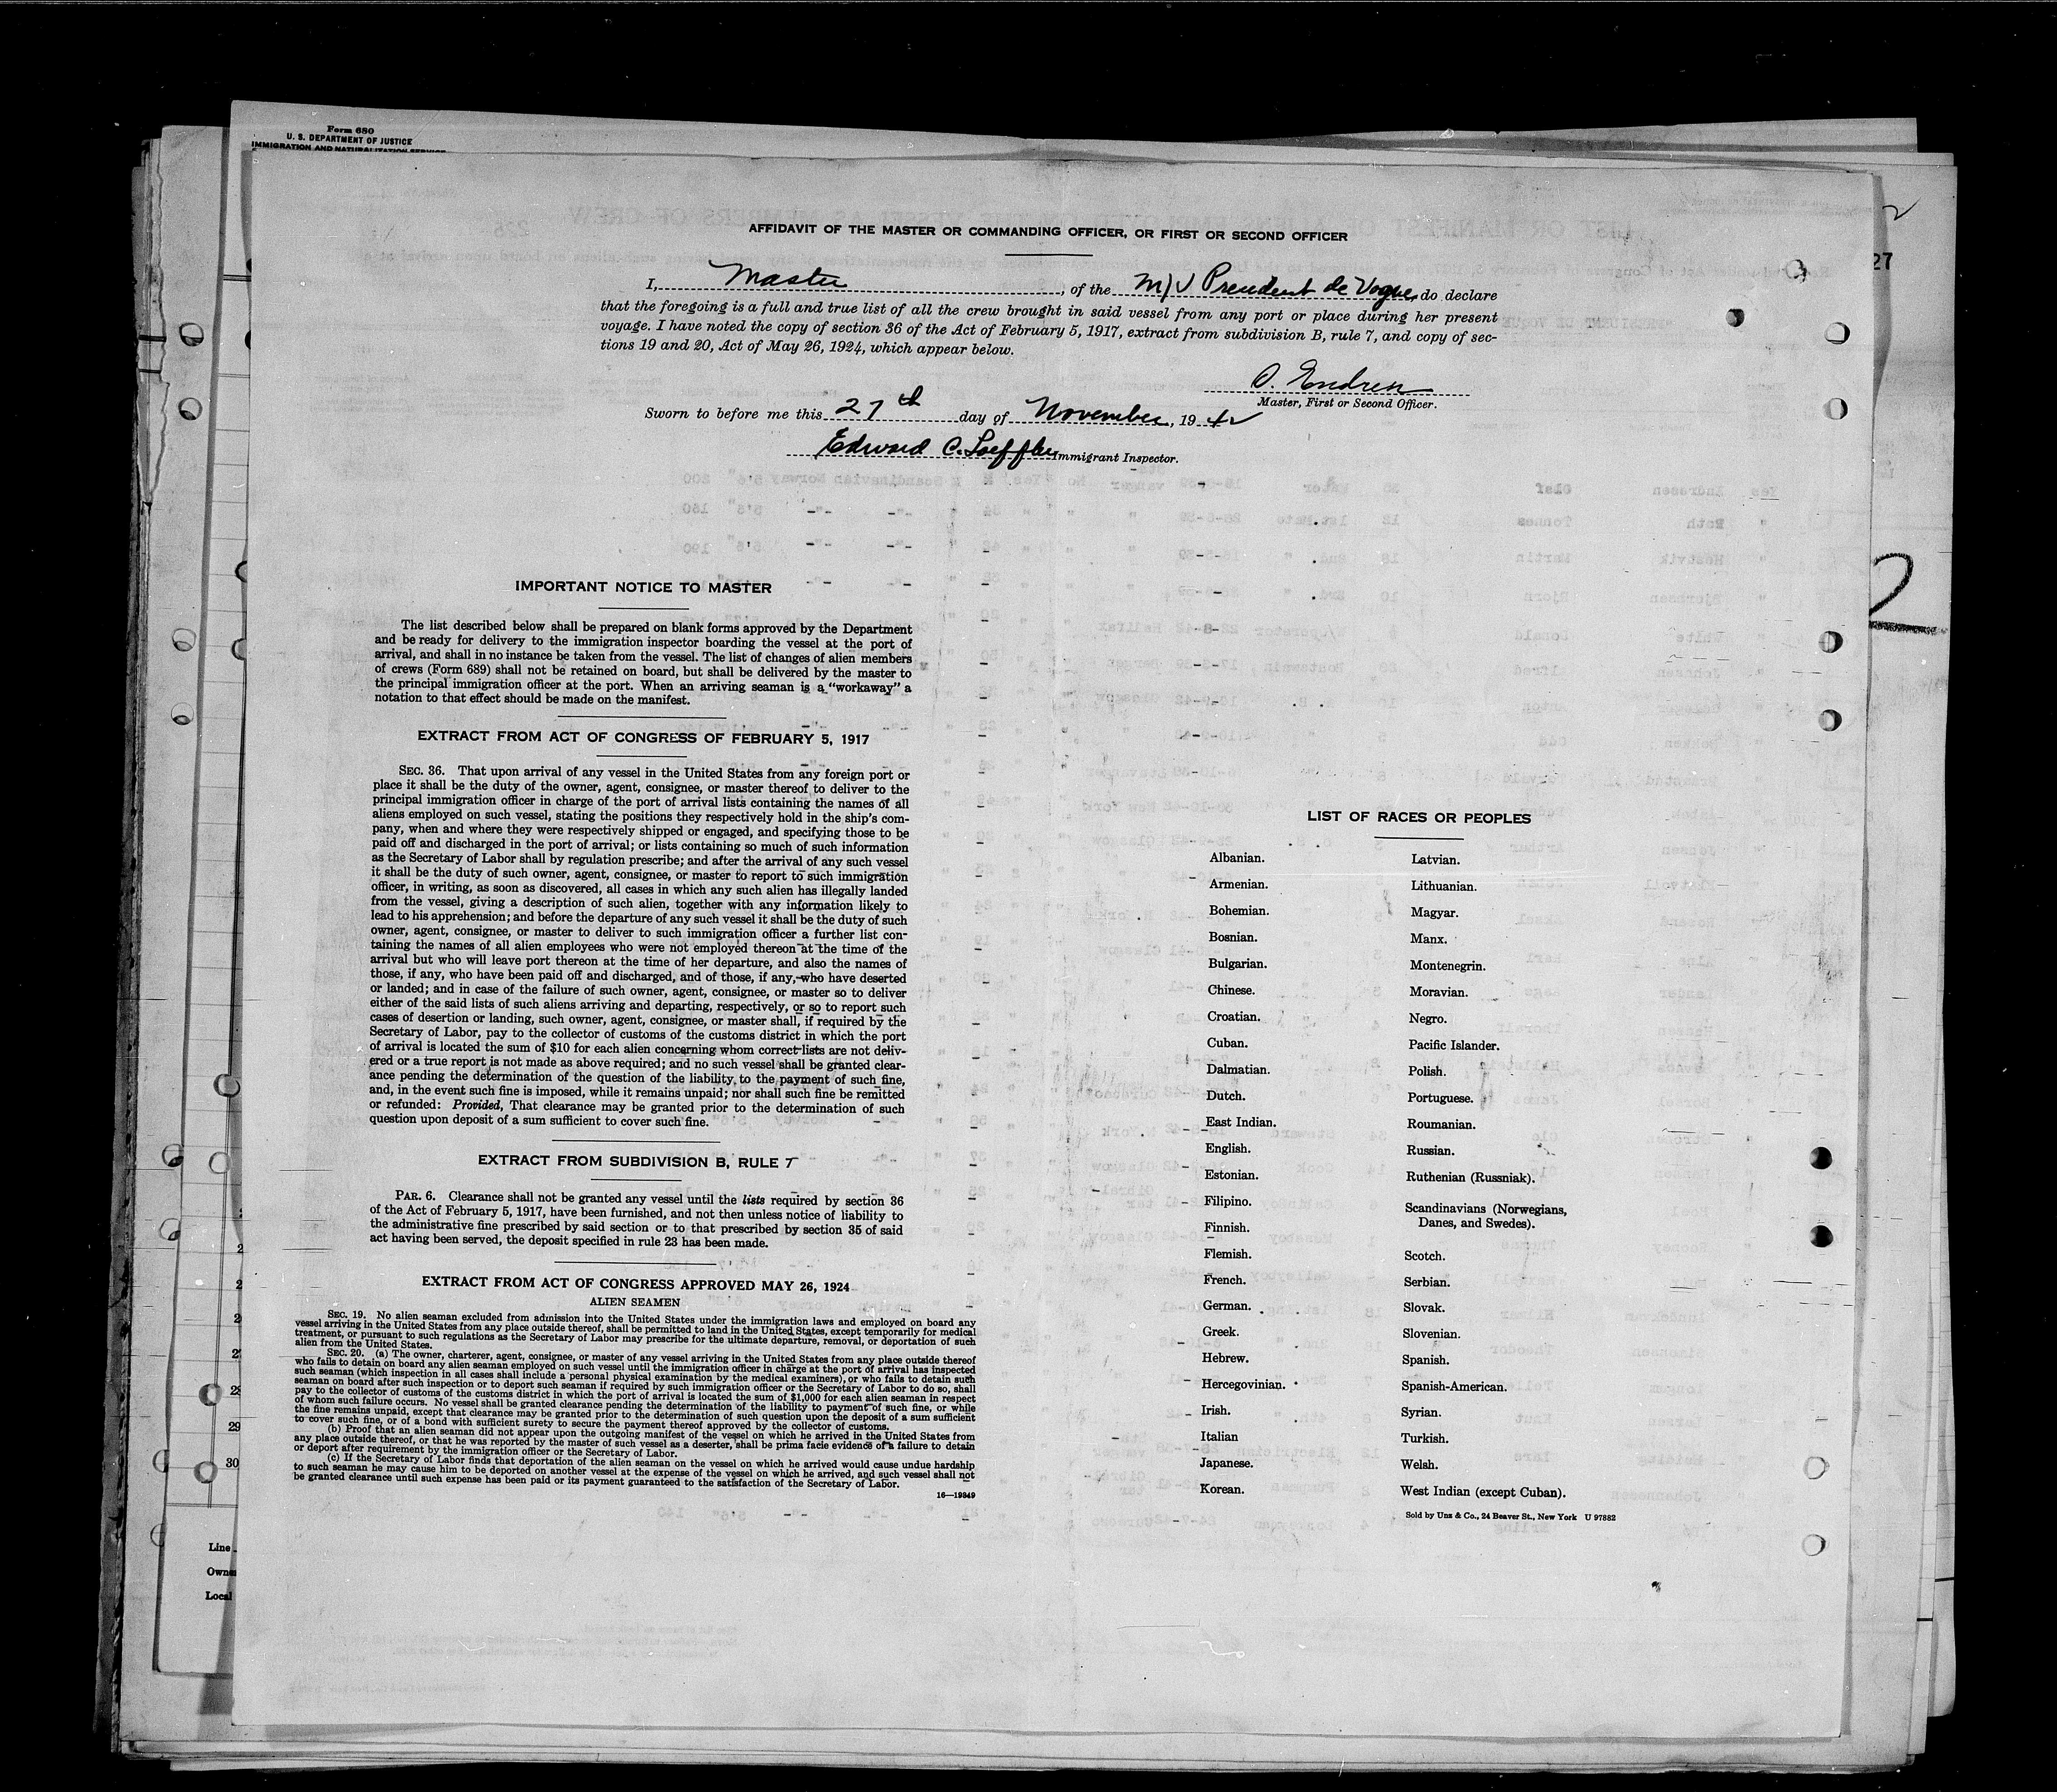 Form 680
U. S. DEPARTMENT OF JUSTICE
IMMIGRATION AND NATURALIZATION SERVICE
27
2
AFFIDAVIT OF THE MASTER OR COMMANDING OFFICER, OR FIRST OR SECOND OFFICER
I, Master, of the M/V President de Vogue, do declare
that the foregoing is a full and true list of all the crew brought in said vessel from any port or place during her present
voyage. I have noted the copy of section 36 of the Act of February 5, 1917, extract from subdivision B, rule 7, and copy of sec-
tions 19 and 20, Act of May 26, 1924, which appear below.
Master, First or Second Officer.
Sworn to before me this 27th day of November, 1942
Edward C. Loeffler Immigrant Inspector.
IMPORTANT NOTICE TO MASTER
The list described below shall be prepared on blank forms approved by the Department
and be ready for delivery to the immigration inspector boarding the vessel at the port of
arrival, and shall in no instance be taken from the vessel. The list of changes of alien members
of crews (Form 689) shall not be retained on board, but shall be delivered by the master to
the principal immigration officer at the port. When an arriving seaman is a "workaway" a
notation to that effect should be made on the manifest.
EXTRACT FROM ACT OF CONGRESS OF FEBRUARY 5, 1917
SEC. 36. That upon arrival of any vessel in the United States from any foreign port or
place it shall be the duty of the owner, agent, consignee, or master thereof to deliver to the
principal immigration officer in charge of the port of arrival lists containing the names of all
aliens employed on such vessel, stating the positions they respectively hold in the ship's com-
pany, when and where they were respectively shipped or engaged, and specifying those to be
paid off and discharged in the port of arrival; or lists containing so much of such information
as the Secretary of Labor shall by regulation prescribe; and after the arrival of any such vessel
it shall be the duty of such owner, agent, consignee, or master to report to such immigration
officer, in writing, as soon as discovered, all cases in which any such alien has illegally landed
from the vessel, giving a description of such alien, together with any information likely to
lead to his apprehension; and before the departure of any such vessel it shall be the duty of such
owner, agent, consignee, or master to deliver to such immigration officer a further list con-
taining the names of all alien employees who were not employed thereon at the time of the
arrival but who will leave port thereon at the time of her departure, and also the names of
those, if any, who have been paid off and discharged, and of those, if any, who have deserted
or landed; and in case of the failure of such owner, agent, consignee, or master so to deliver
either of the said lists of such aliens arriving and departing, respectively, or so to report such
cases of desertion or landing, such owner, agent, consignee, or master shall, if required by the
Secretary of Labor, pay to the collector of customs of the customs district in which the port
of arrival is located the sum of $10 for each alien concerning whom correct lists are not deliv-
ered or a true report is not made as above required; and no such vessel shall be granted clear-
ance pending the determination of the question of the liability to the payment of such fine,
and, in the event such fine is imposed, while it remains unpaid; nor shall such fine be remitted
or refunded: Provided, That clearance may be granted prior to the determination of such
question upon deposit of a sum sufficient to cover such fine.
EXTRACT FROM SUBDIVISION B, RULE 7
PAR. 6. Clearance shall not be granted any vessel until the lists required by section 36
of the Act of February 5, 1917, have been furnished, and not then unless notice of liability to
the administrative fine prescribed by said section or to that prescribed by section 35 of said
act having been served, the deposit specified in rule 23 has been made.
EXTRACT FROM ACT OF CONGRESS APPROVED MAY 26, 1924
ALIEN SEAMEN
SEC. 19. No alien seaman excluded from admission into the United States under the immigration laws and employed on board any
vessel arriving in the United States from any place outside thereof, shall be permitted to land in the United States, except temporarily for medical
treatment, or pursuant to such regulations as the Secretary of Labor may prescribe for the ultimate departure, removal, or deportation of such
alien from the United States.
SEC. 20. (a) The owner, charterer, agent, consignee, or master of any vessel arriving in the United States from any place outside thereof
who fails to detain on board any alien seaman employed on such vessel until the immigration officer in charge at the port of arrival has inspected
such seaman (which inspection in all cases shall include a personal physical examination by the medical examiners), or who fails to detain such
seaman on board after such inspection or to deport such seaman if required by such immigration officer or the Secretary of Labor to do so, shall
pay to the collector of customs of the customs district in which the port of arrival is located the sum of $1,000 for each alien seaman in respect
of whom such failure occurs. No vessel shall be granted clearance pending the determination of the liability to payment of such fine, or while
the fine remains unpaid, except that clearance may be granted prior to the determination of such question upon the deposit of a sum sufficient
to cover such fine, or of a bond with sufficient surety to secure the payment thereof approved by the collector of customs.
(b) Proof that an alien seaman did not appear upon the outgoing manifest of the vessel on which he arrived in the United States from
any place outside thereof, or that he was reported by the master of such vessel as a deserter, shall be prima facie evidence of a failure to detain
or deport after requirement by the immigration officer or the Secretary of Labor.
(c) If the Secretary of Labor finds that deportation of the alien seaman on the vessel on which he arrived would cause undue hardship
to such seaman he may cause him to be deported on another vessel at the expense of the vessel on which he arrived, and such vessel shall not
be granted clearance until such expense has been paid or its payment guaranteed to the satisfaction of the Secretary of Labor.
16—19849
LIST OF RACES OR PEOPLES
Albanian.
Armenian.
Bohemian.
Bosnian.
Bulgarian.
Chinese.
Croatian.
Cuban.
Dalmatian.
Dutch.
East Indian.
English.
Estonian.
Filipino.
Finnish.
Flemish.
French.
German.
Greek.
Hebrew.
Hercegovinian.
Irish.
Italian
Japanese.
Korean.
Latvian.
Lithuanian.
Magyar.
Manx.
Montenegrin.
Moravian.
Negro.
Pacific Islander.
Polish.
Portuguese.
Roumanian.
Russian.
Ruthenian (Russniak).
Scandinavians (Norwegians,
Danes, and Swedes).
Scotch.
Serbian.
Slovak.
Slovenian.
Spanish.
Spanish-American.
Syrian.
Turkish.
Welsh.
West Indian (except Cuban).
Sold by Unz & Co., 24 Beaver St., New York U 97882
29
30
Line
Owner
Local